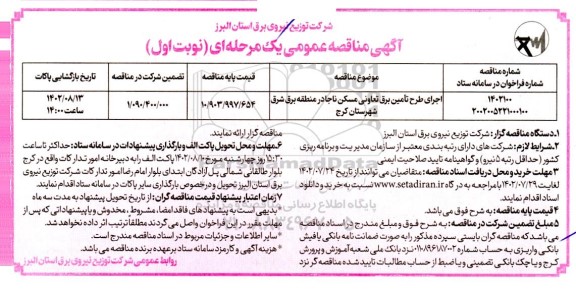 شرکت توزیع نیروی برق استان البرز
آگهی مناقصه عمومی یک مرحله‌ای (نوبت اول)
شماره مناقصه
شماره فراخوان در سامانه ستاد
موضوع مناقصه
قیمت پایه مناقصه
تضمین شرکت در مناقصه
تاریخ بازگشایی پاکات
۱۴۰۲۱۰۰
۲۰۰۲۰۰۵۲۲۱۰۰۰۱۰۰
اجرای طرح تأمین برق تعاونی مسکن ناجا در منطقه برق شرق شهرستان کرج
۱۰/۹۰۳/۹۹۷/۶۵۴
۱/۰۹۰/۴۰۰/۰۰۰
۱۴۰۲/۰۸/۱۳
ساعت ۱۴:۰۰
۱.دستگاه مناقصه گزار: شرکت توزیع نیروی برق استان البرز
۲.شرایط لازم: شرکت های دارای رتبه بندی معتبر از سازمان مدیریت و برنامه ریزی
کشور (حداقل رتبه ۵ نیرو) و گواهینامه تایید صلاحیت ایمنی
۳.مهلت خرید و محل دریافت اسناد مناقصه: متقاضیان می توانند از تاریخ ۱۴۰۲/۰۷/۲۴
لغایت ۱۴۰۲/۰۷/۲۹ با مراجعه به درگاه www.setadiran.ir نسبت به خرید و دانلود
اسناد اقدام نمایند.
۴.قیمت پایه مناقصه: به شرح فوق می باشد.
۵.مبلغ تضمین شرکت در مناقصه: به شرح فوق و مبلغ مندرج در اسناد مناقصه
می باشد که مناقصه گران بایستی سپرده مذکور را به صورت ضمانت نامه بانکی یا فیش
بانکی واریزی به حساب شماره نزد بانک ملی شعبه آموزش و پرورش
کرج و یا چک بانکی تضمینی و یا ضبط از حساب مطالبات تایید شده مناقصه گر نزد
مناقصه گزار ارائه نمایند.
۶.مهلت و محل تحویل پاکت الف و بارگذاری پیشنهادات در سامانه ستاد: حداکثر تا ساعت
۱۵:۳۰ روز چهارشنبه مورخ ۱۴۰۲/۰۸/۱۰ پاکت الف را به دبیرخانه امور تدارکات واقع در کرج
بلوار طالقانی شمالی پل آزادگان ابتدای بلوار امام رضا امور تدارکات شرکت توزیع نیروی
برق استان البرز تحویل و درخصوص بارگذاری سایر پاکات در سامانه ستاد اقدام نمایند.
۷.زمان اعتبار پیشنهاد قیمت مناقصه گران: از تاریخ تحویل پیشنهاد به مدت سه ماه
* بدیهی است به پیشنهاد های فاقد امضا، مشروط، مخدوش و یا پیشنهاداتی که پس از
مهلت مقرر در این فراخوان واصل می گردند مطلقا ترتیب اثر داده نخواهد شد.
* سایر اطلاعات و جزئیات مربوط در اسناد مناقصه مندرج است.
* هزینه آگهی و کارمزد سامانه ستاد بر عهده برنده مناقصه می باشد.
روابط عمومی شرکت توزیع نیروی برق استان البرز